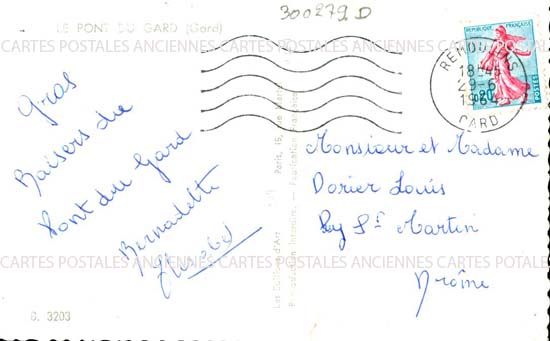 300279 D
LE PONT DU GARD (Gard)
CARTES POSTALES ANCIENNES CARTES POSTALES ANCIENNES CARTES POSTALES
REPUBLIQUE FRANÇAISE
0,20
POSTES
REMOULINS
18H45
29-6
1964
GARD
Gros
Baisers du
Pont du Gard
Bernadette
Monsieur et Madame
Dorier Louis
Puy St Martin
Drôme
CARTES POSTALES ANCIENNES CARTES POSTALES ANCIENNES CARTES POSTALES
Les Editions d'Art
Paris, 15, Rue Martel
Reproduction Interdite. — Fabrication Française
G. 3203